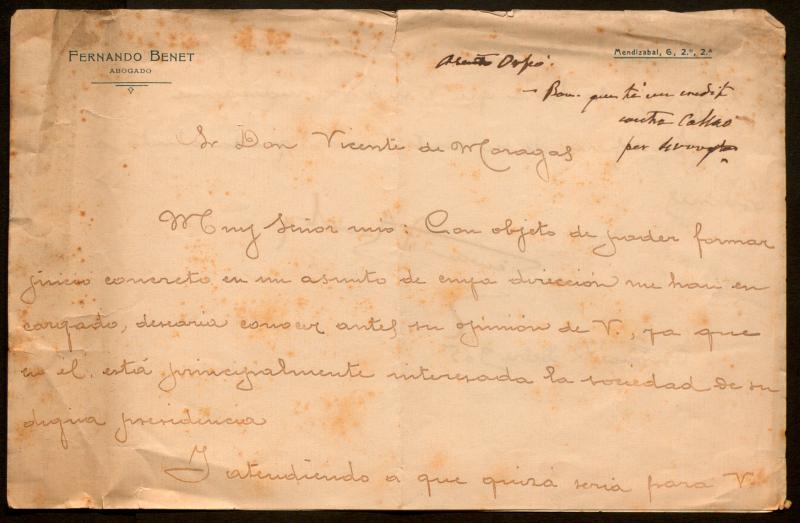 FERNANDO BENET
ABOGADO
Mendizabal, 6, 2.º, 2.ª
Bon. que té un credit
contra Callao
per
Sr Don Vicente de Moragas
Muy Señor mio: Con objeto de poder formar
juicio concreto en un asunto de cuya dirección me han en
cargado, desearia conocer antes su opinión de V., ya que
en él está principalmente interesada la sociedad de su
digna presidencia
Y atendiendo a que quizá seria para V.